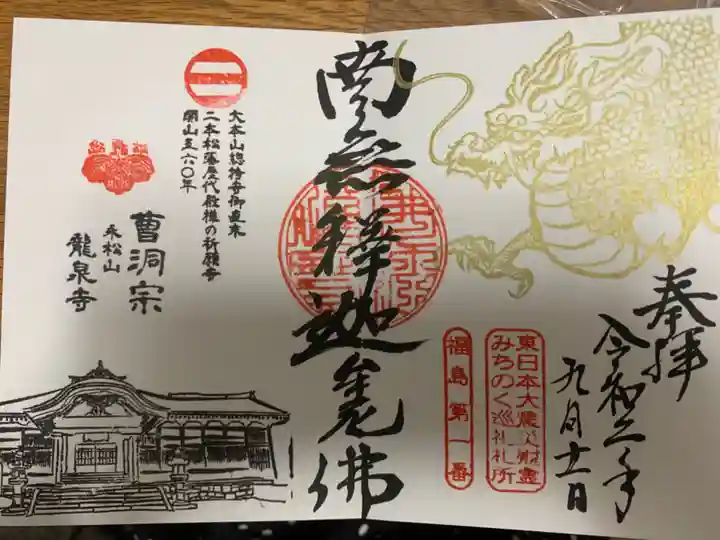 奉拝
令和二年
九月十一日
東日本大震災慰霊
みちのく巡礼札所
福島第一番
南無釋迦牟尼佛
大本山總持寺御直末
二本松藩歴代殿様の祈願寺
開山五六〇年
曹洞宗
永松山
龍泉寺